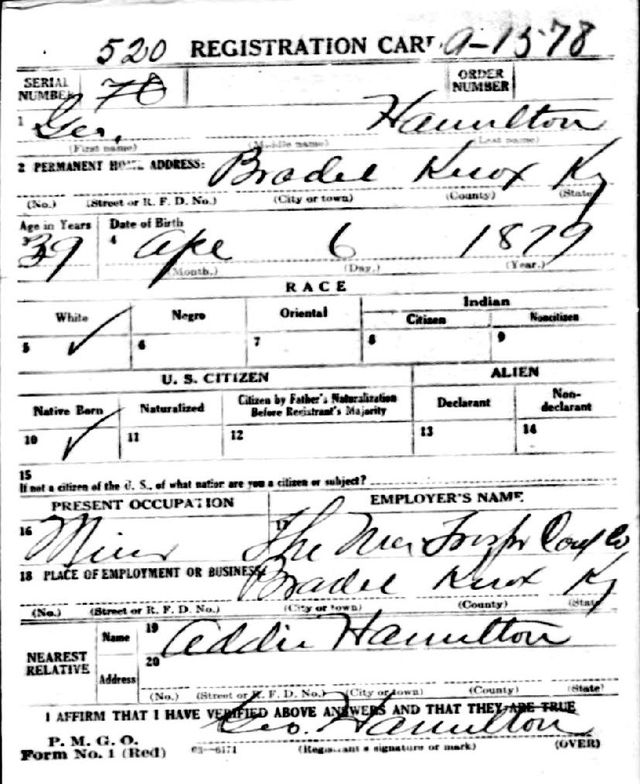 520 REGISTRATION CARD A-1578
SERIAL NUMBER 78 ORDER NUMBER
1 Geo. Hamilton
(First name) (Middle name) (Last name)
2 PERMANENT HOME ADDRESS: Knox Ky
(No.) (Street or R. F. D. No.) (City or town) (County) (State)
Age in Years Date of Birth
3 39 4 Apr 6 1879
(Month.) (Day.) (Year.)
RACE
White Negro Oriental Indian
Citizen Noncitizen
5 ✓ 6 7 8 9
U. S. CITIZEN ALIEN
Native Born Naturalized Citizen by Father's Naturalization Before Registrant's Majority Declarant Non-declarant
10 ✓ 11 12 13 14
15
If not a citizen of the U. S., of what nation are you a citizen or subject?
PRESENT OCCUPATION EMPLOYER'S NAME
16 Miner 17 The Coal Co
18 PLACE OF EMPLOYMENT OR BUSINESS: Knox Ky
(No.) (Street or R. F. D. No.) (City or town) (County) (State)
NEAREST RELATIVE Name 19 Addie Hamilton
Address 20
(No.) (Street or R. F. D. No.) (City or town) (County) (State)
I AFFIRM THAT I HAVE VERIFIED ABOVE ANSWERS AND THAT THEY ARE TRUE
Geo. Hamilton
P. M. G. O.
Form No. 1 (Red) 03-6171 (Registrant's signature or mark) (OVER)